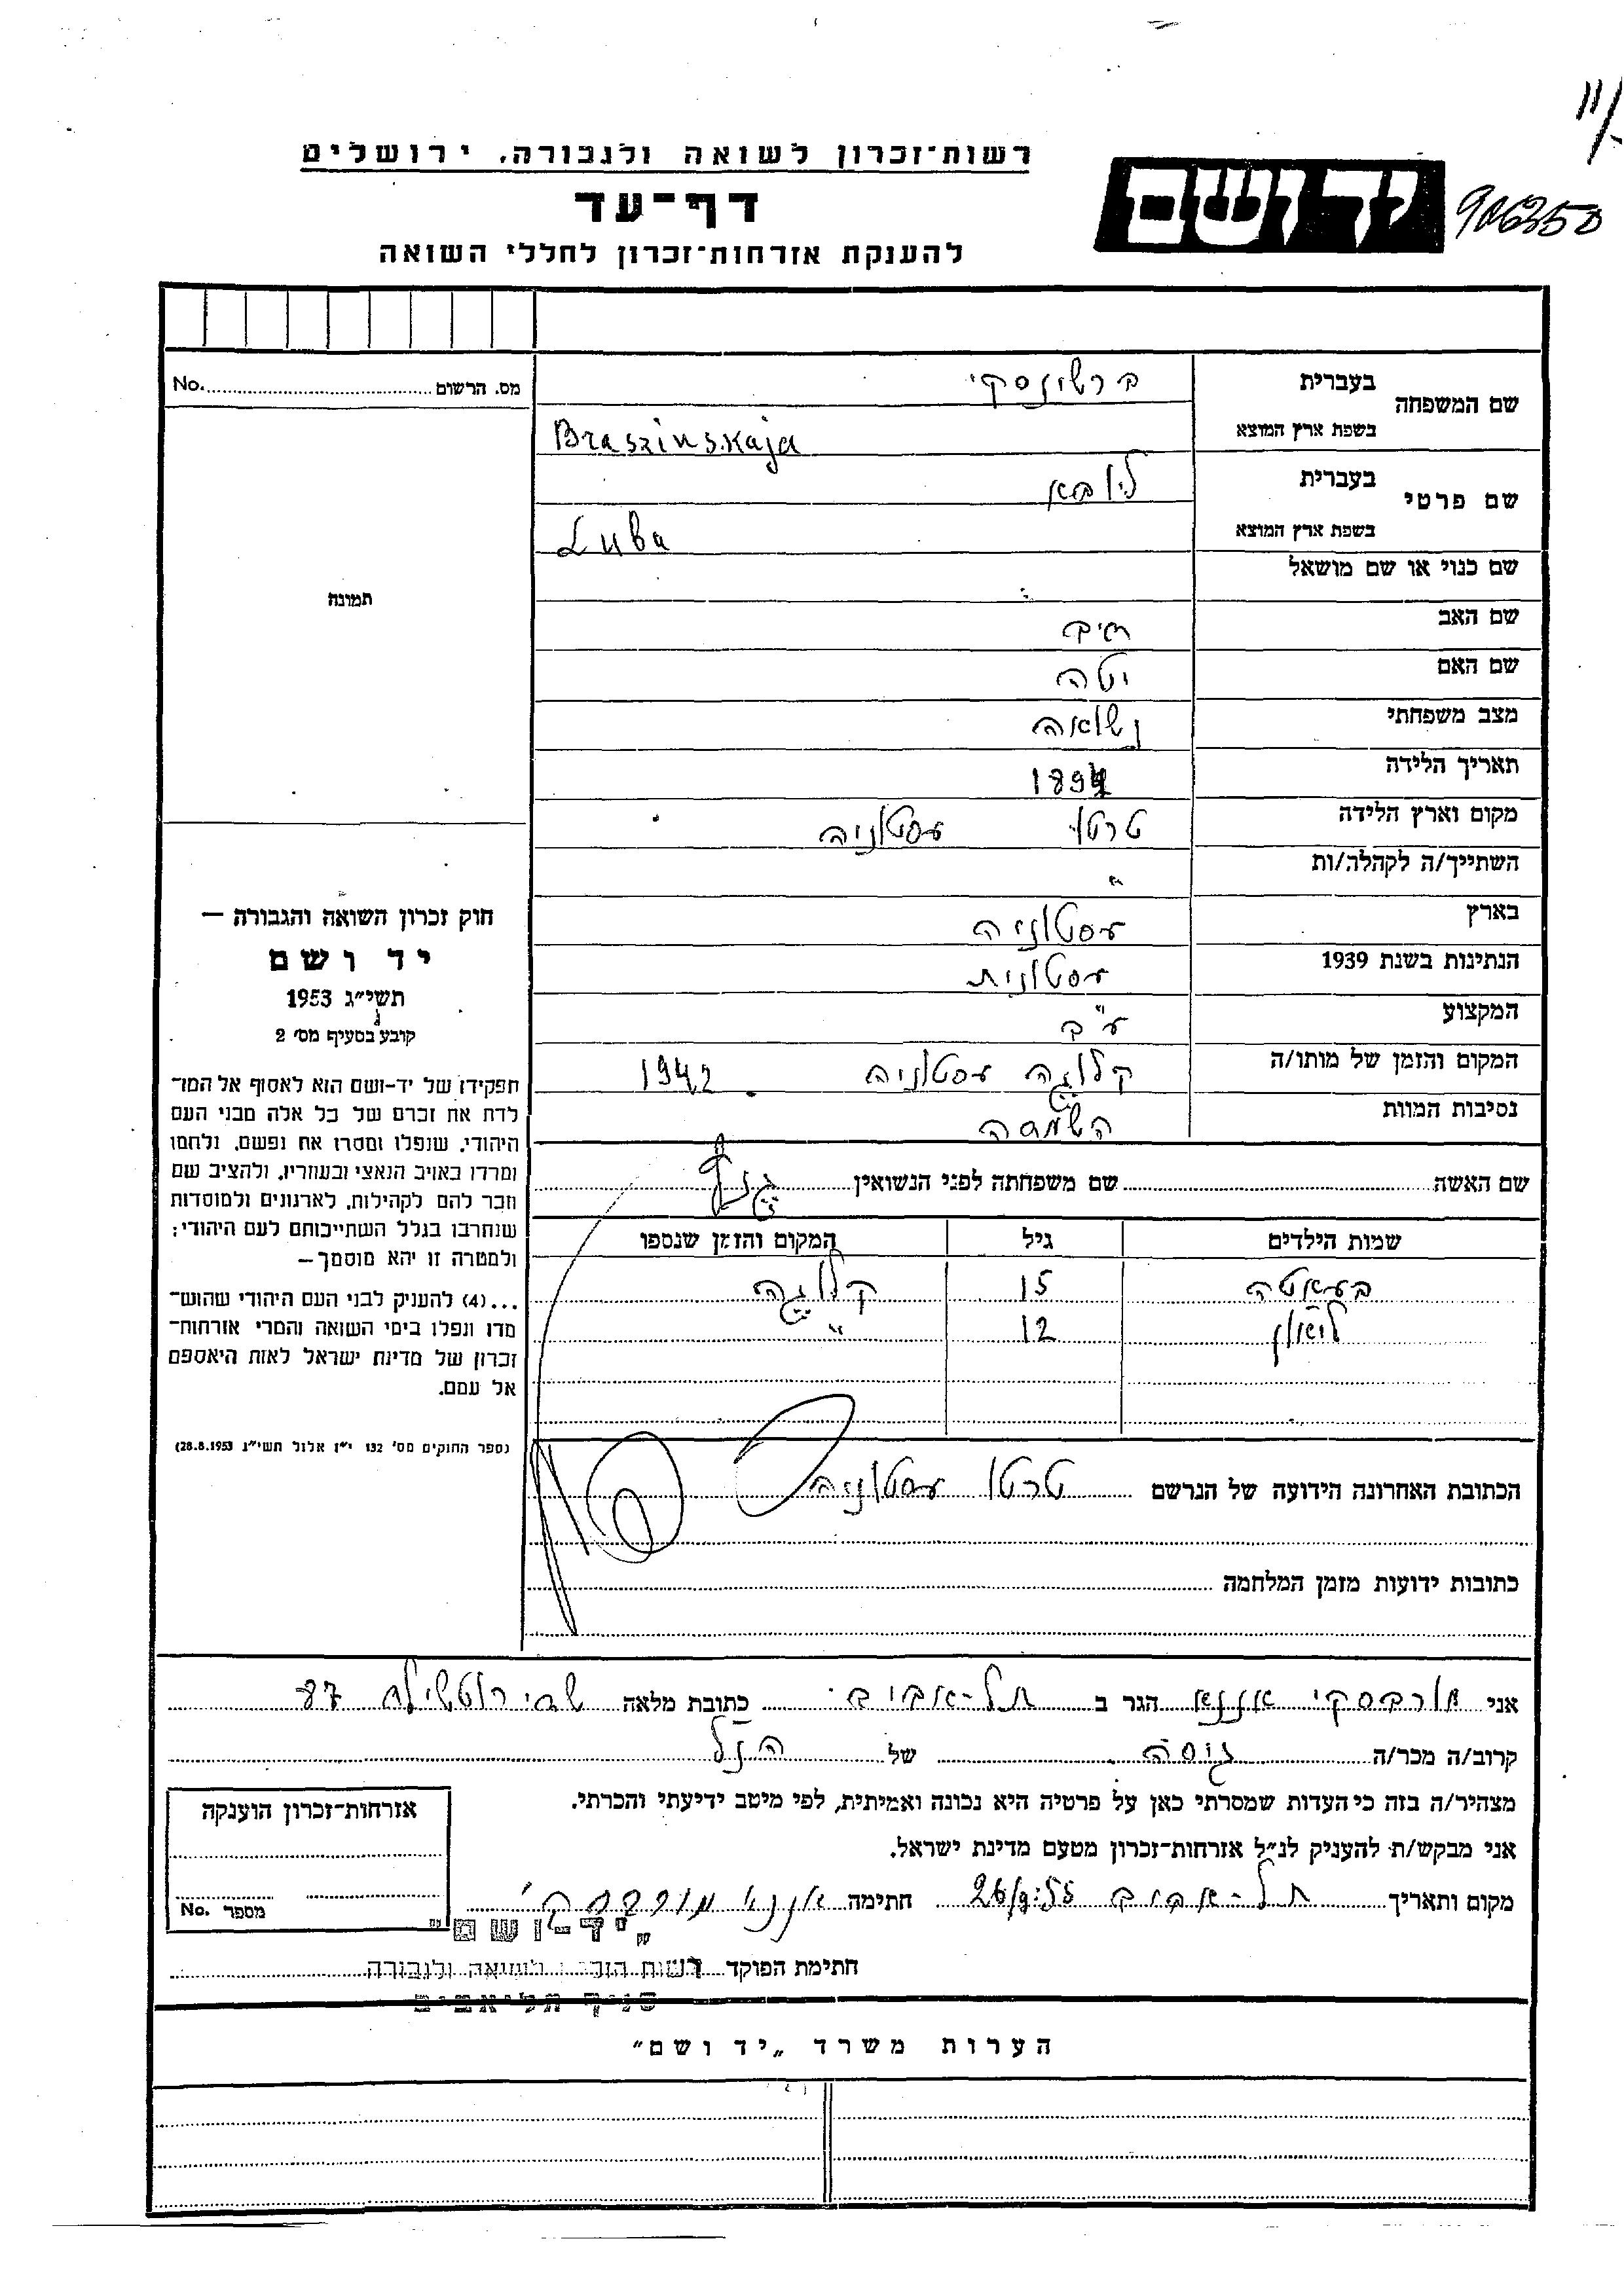 רשות־זכרון לשואה ולגבורה, ירושלים
דף־עד
להענקת אזרחות־זכרון לחללי השואה
יד ושם
906350
מס. הרשום No.
תמונה
שם המשפחה בעברית ברשינסקי
בשפת ארץ המוצא Braszinskaja
שם פרטי בעברית ליובא
בשפת ארץ המוצא Luba
שם כנוי או שם מושאל
שם האב
שם האם יטה
מצב משפחתי נשואה
תאריך הלידה
מקום וארץ הלידה טרטו עסטוניה
השתייך/ה לקהלה/ות "
בארץ עסטוניה
הנתינות בשנת 1939 עסטונית
המקצוע ע"ב
המקום והזמן של מותו/ה קלוגה עסטוניה 1942
נסיבות המוות השמדה
שם האשה שם משפחתה לפני הנשואין
שמות הילדים גיל המקום והזמן שנספו
בעאטה 15 קלוגה
12 "
הכתובת האחרונה הידועה של הנרשם טרטו עסטוניה
כתובות ידועות מזמן המלחמה
חוק זכרון השואה והגבורה —
יד ושם
תשי״ג 1953
קובע בסעיף מס׳ 2
תפקידו של יד-ושם הוא לאסוף אל המו־
לדת את זכרם של כל אלה מבני העם
היהודי, שנפלו ומסרו את נפשם, נלחמו
ומרדו באויב הנאצי ובעוזריו, ולהציב שם
וזכר להם לקהילות, לארגונים ולמוסדות
שנחרבו בגלל השתייכותם לעם היהודי;
ולמטרה זו יהא מוסמך—
...(4) להעניק לבני העם היהודי שהוש־
מדו ונפלו בימי השואה והמרי אזרחות־
זכרון של מדינת ישראל לאות היאספם
אל עמם.
(ספר החוקים מס׳ 132 י״ז אלול תשי״ג 28.8.1953)
אני אננא הגר ב תל-אביב כתובת מלאה 87
קרוב/ה מכר/ה גיסה של הנ"ל
מצהיר/ה בזה כי העדות שמסרתי כאן על פרטיה היא נכונה ואמיתית, לפי מיטב ידיעתי והכרתי.
אני מבקש/ת להעניק לנ״ל אזרחות־זכרון מטעם מדינת ישראל.
מקום ותאריך תל-אביב 26/9.55 חתימה אננא
אזרחות־זכרון הוענקה
מספר No.
„יד-ושם"
חתימת הפוקד רשות הזכרון לשואה ולגבורה
סניף תל־אביב
הערות משרד „יד ושם״